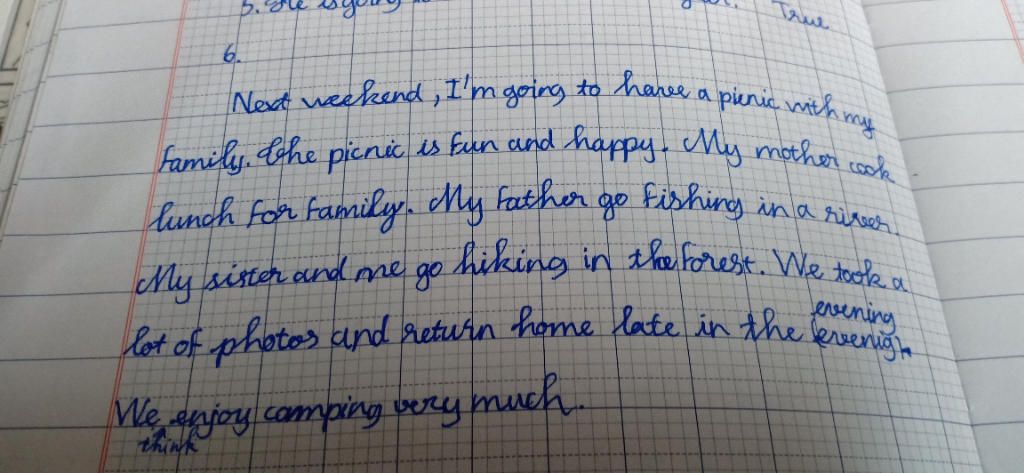 5. She is going
True
6.
Next weekend, I'm going to have a picnic with my
family. The picnic is fun and happy. My mother cook
lunch for family. My father go fishing in a river.
My sister and me go hiking in the forest. We took a
lot of photos and return home late in the evenigh
evening
We enjoy camping very much.
think